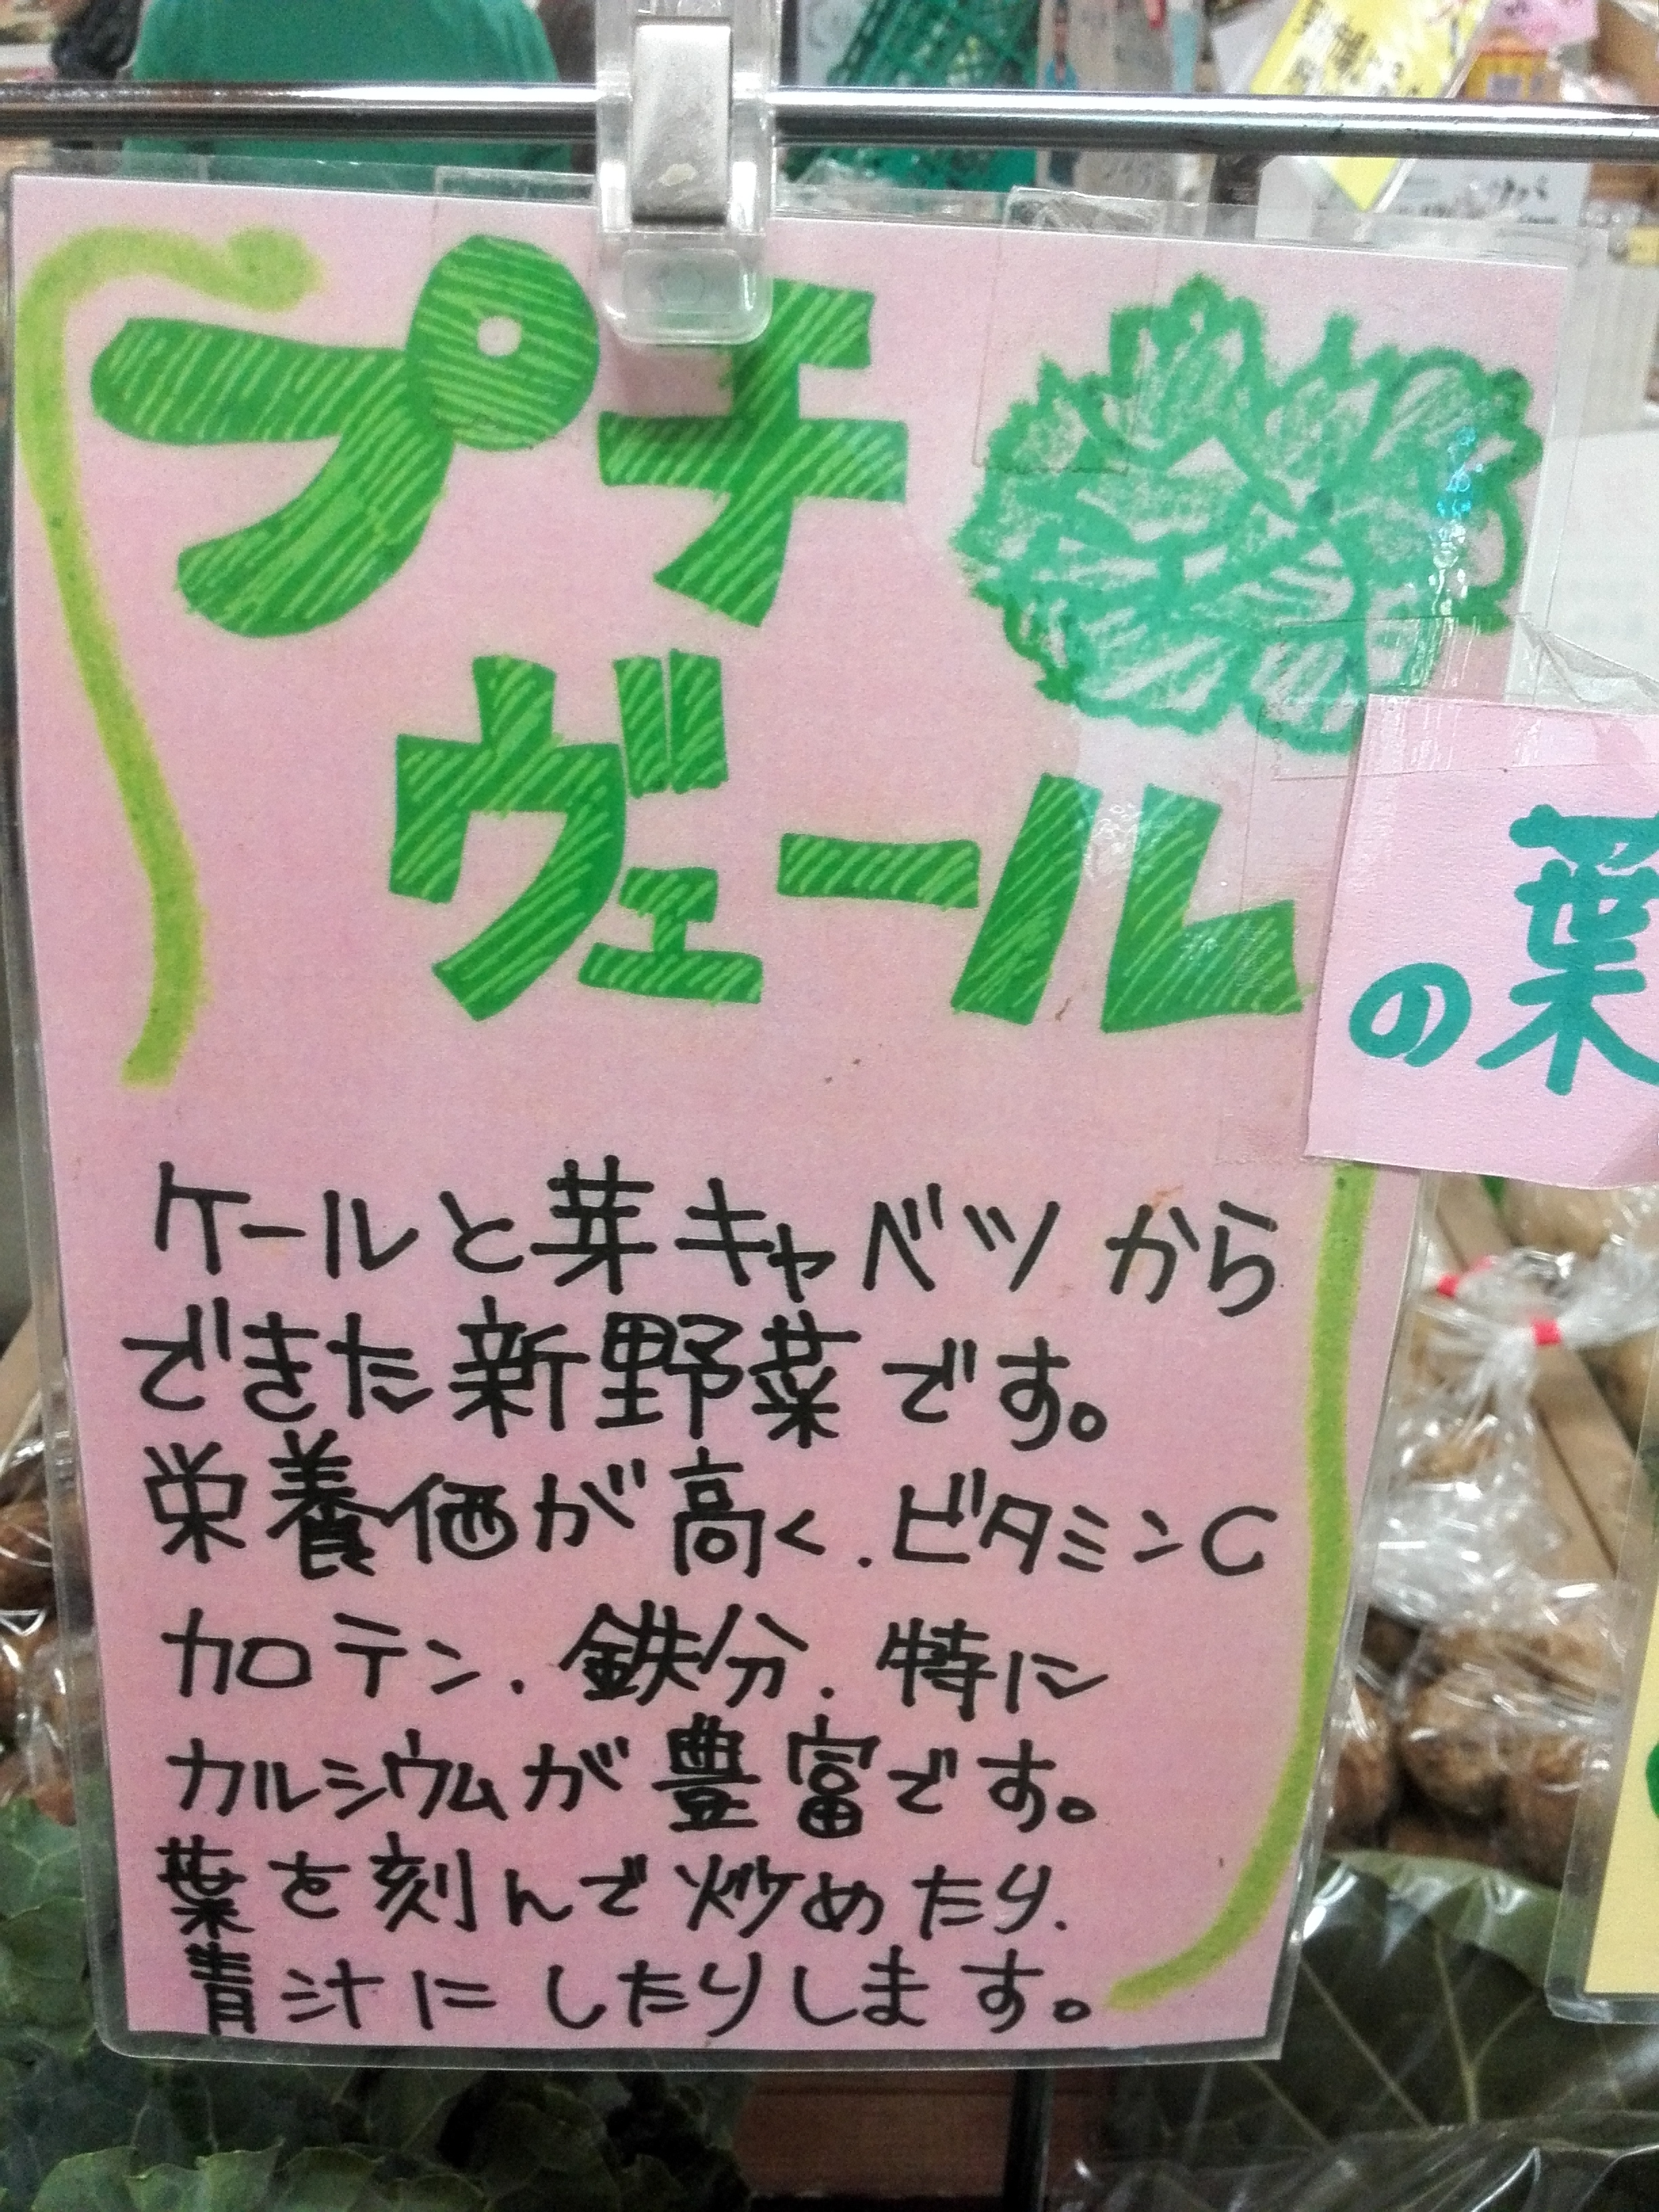 プチ
ヴェール
の葉
ケールと芽キャベツから
できた新野菜です。
栄養価が高く、ビタミンC
カロテン、鉄分、特に
カルシウムが豊富です。
葉を刻んで炒めたり、
青汁にしたりします。